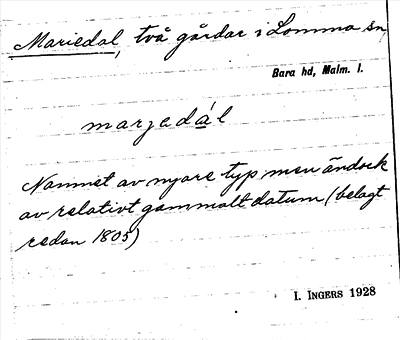 Mariedal, två gårdar i Lomma sn,
Bara hd, Malm. l.
marjedál
Namnet av nyare typ men ändock
av relativt gammalt datum (belagt
redan 1805)
I. INGERS 1928